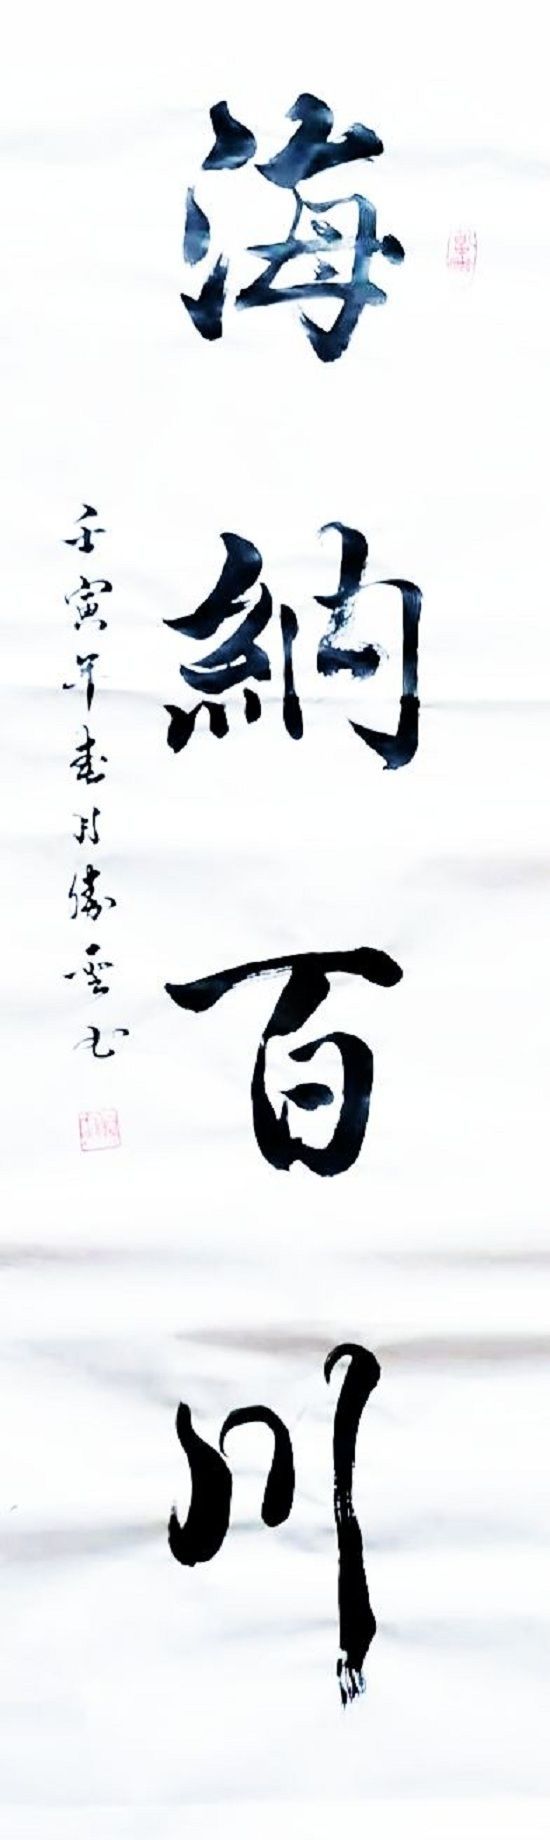 海納百川
壬寅年春月勝雲书